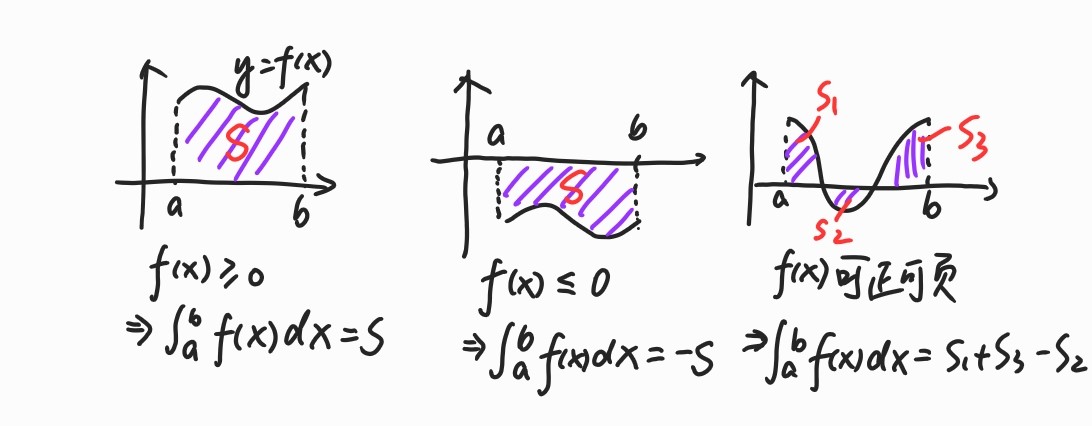 y=f(x)
S
a
b
f(x)≥0
⇒∫_a^b f(x)dx=S
a
b
S
f(x)≤0
⇒∫_a^b f(x)dx=-S
S₁
S₃
a
b
S₂
f(x)可正可负
⇒∫_a^b f(x)dx=S₁+S₃-S₂